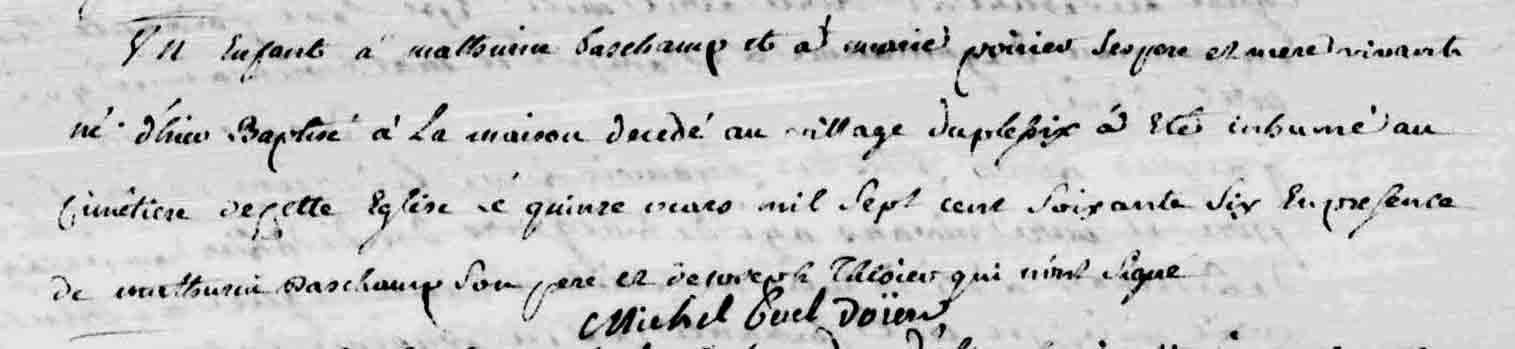 Un Enfant à mathurin Paschamp et à marie poirier ses pere et mere vivants
né d'hier Baptisé à La maison decedé au village duplessix à Eté inhumé au
Cimétiere de Cette Eglise Lé quinze mars mil Sept cent Soixante Six En presence
de mathurin paschamp Son pere et de joseph qui n'ont Signé
Michel Doïen